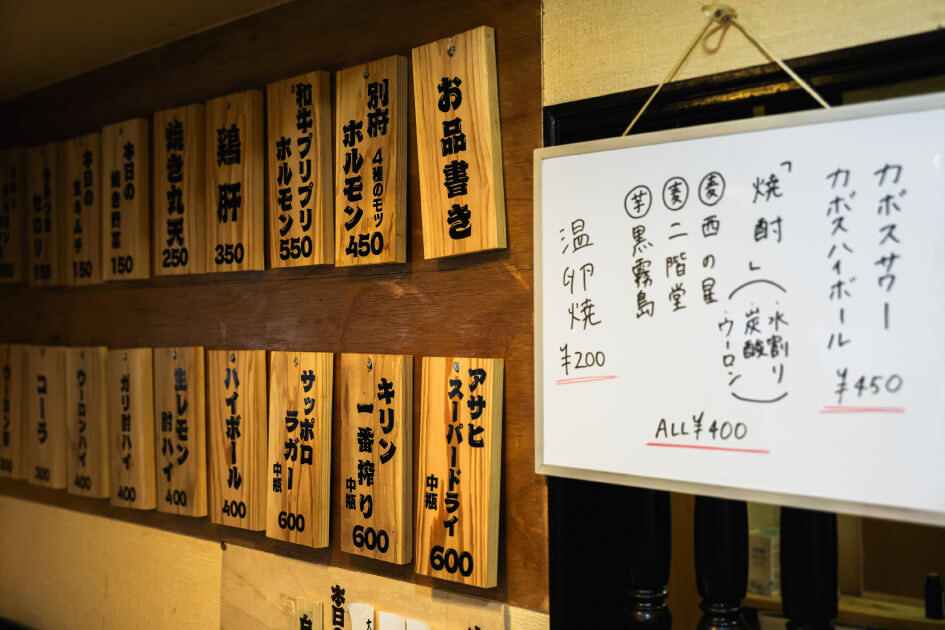 お品書き
別府
4種のモツ
ホルモン
450
和牛プリプリ
ホルモン
550
鶏肝
350
焼き丸天
250
本日の
焼き野菜
150
本日の
生キムチ
150
150
アサヒ
スーパードライ
中瓶
600
キリン
一番搾り
中瓶
600
サッポロ
ラガー
中瓶
600
ハイボール
400
生レモン
酎ハイ
400
ガリ酎ハイ
400
ウーロンハイ
400
コーラ
300
カボスサワー
カボスハイボール
¥450
「焼酎」
(水割り
炭酸
ウーロン)
麦 西の星
麦 二階堂
芋 黒霧島
ALL¥400
温卵焼
¥200
本日の